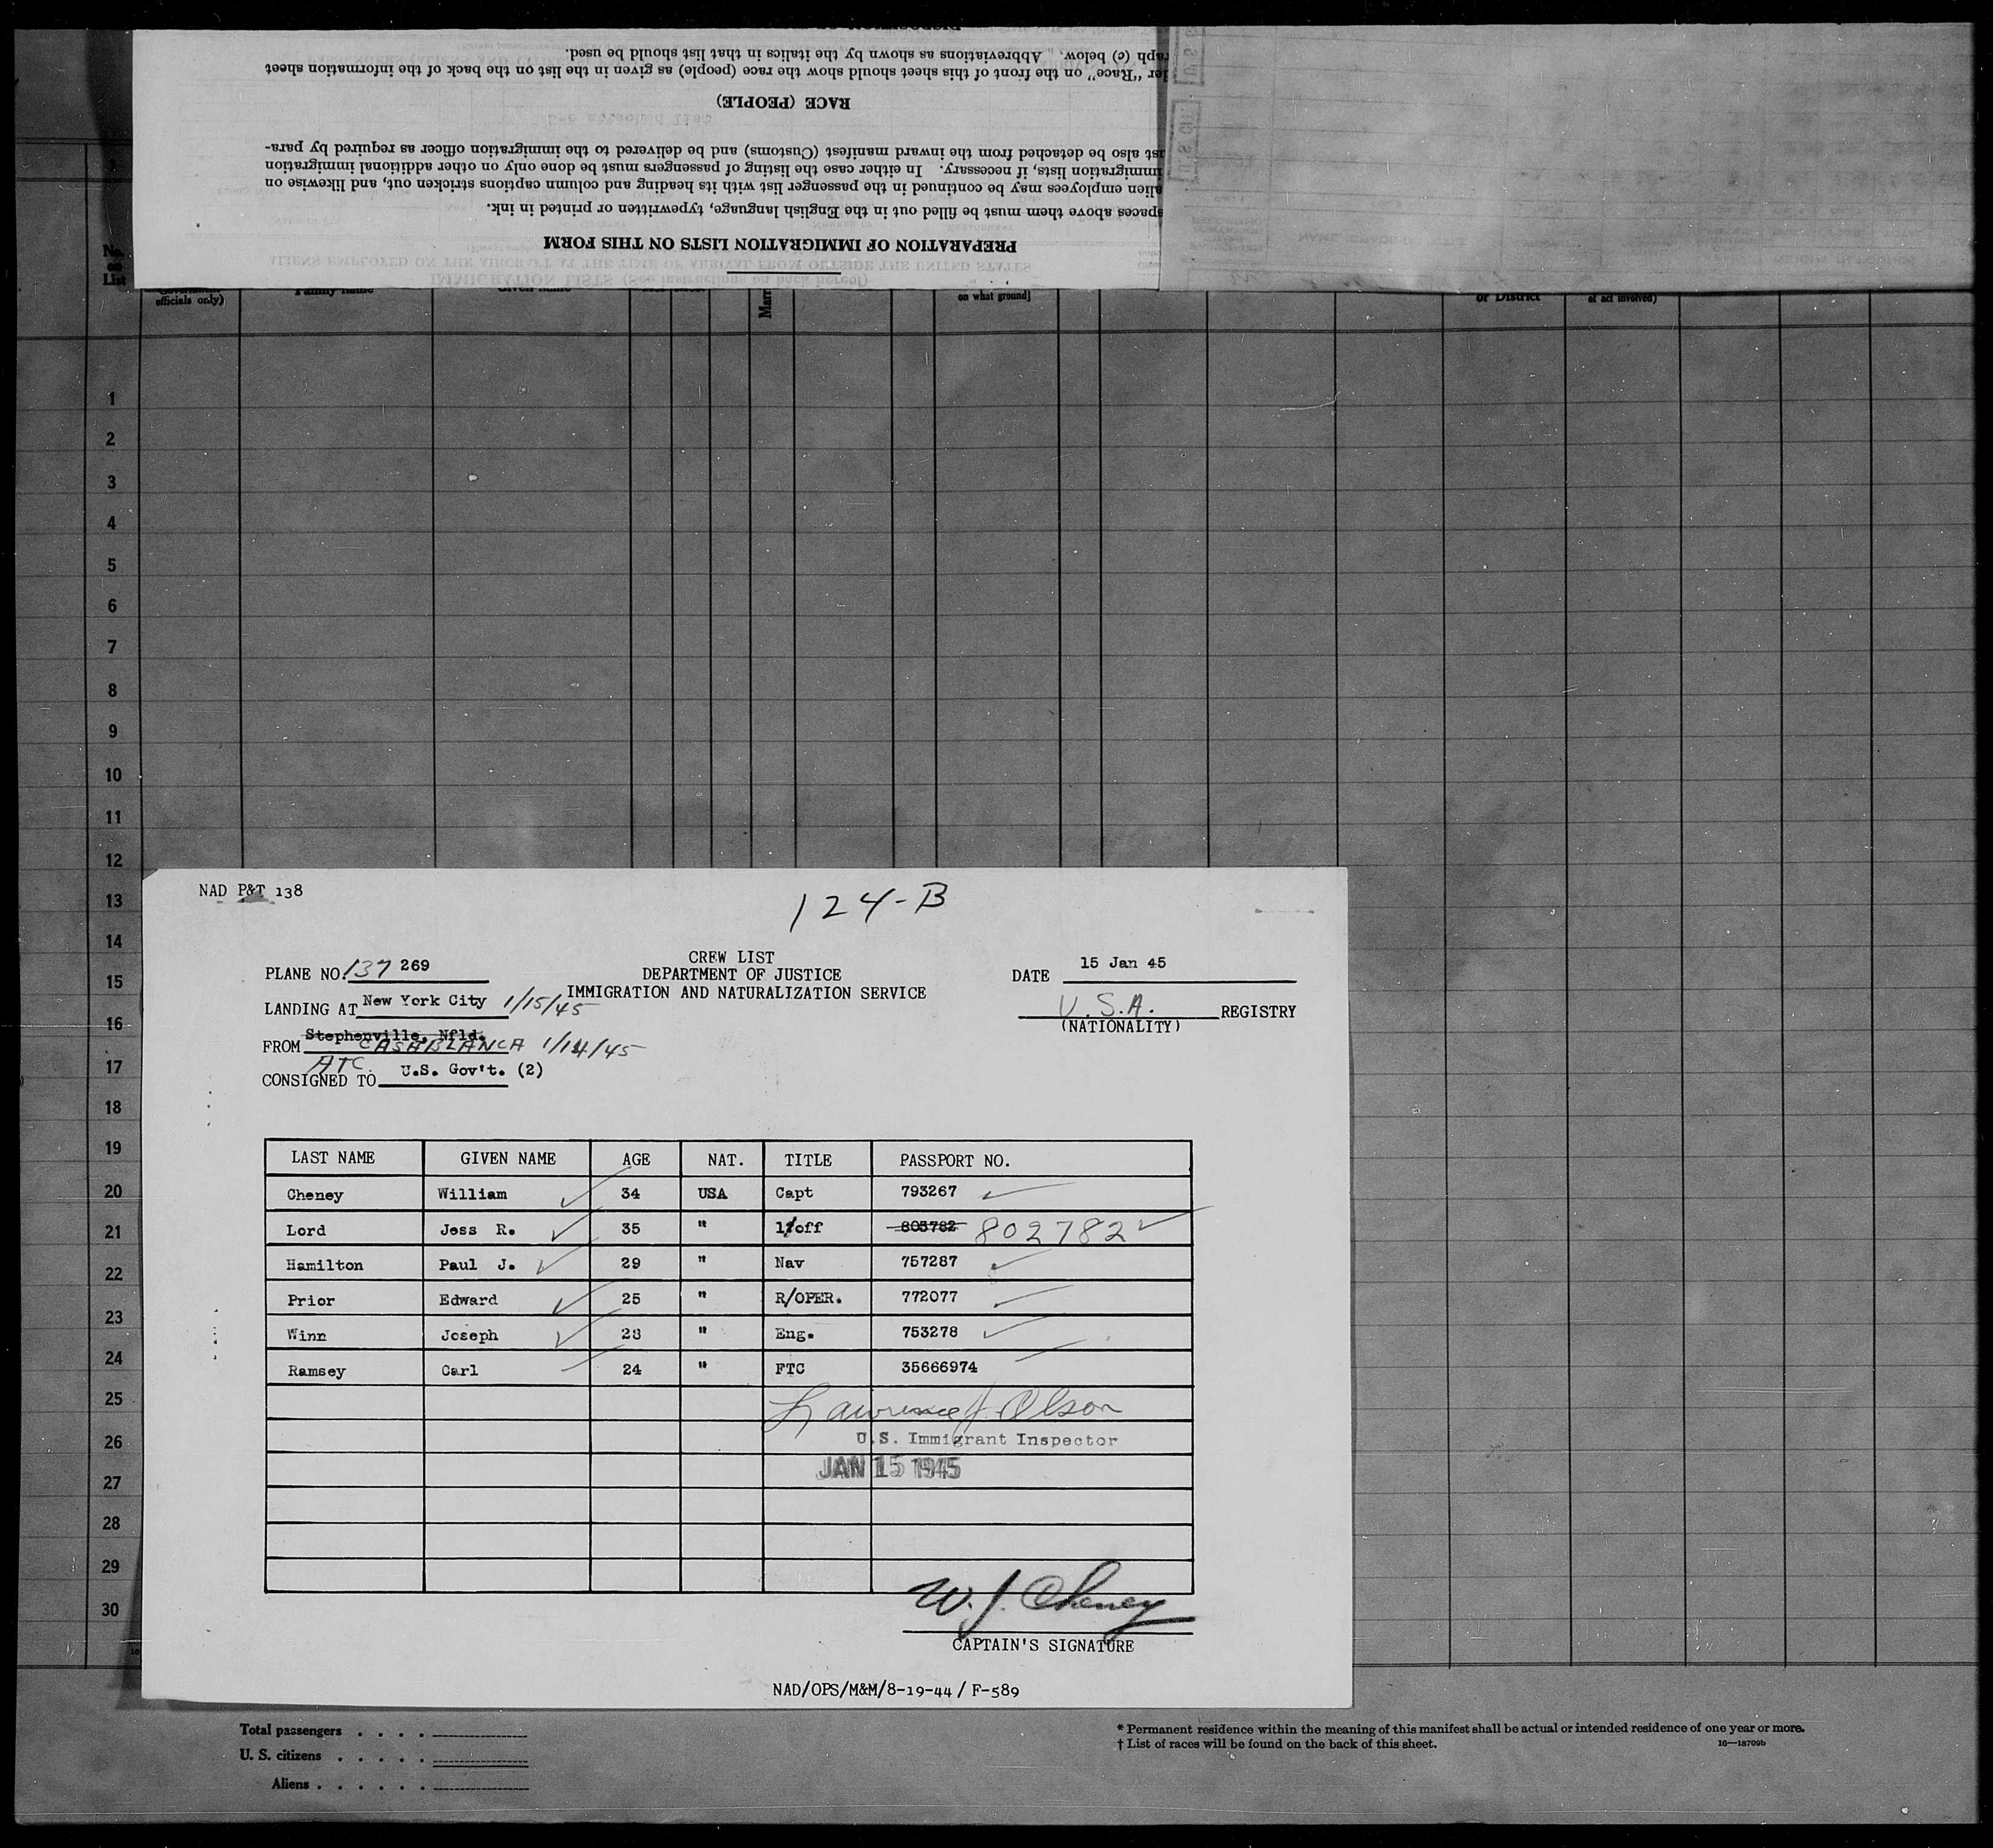 raph (c) below. Abbreviations as shown by the italics in that list should be used.
der "Race" on the front of this sheet should show the race (people) as given in the list on the back of the information sheet
RACE (PEOPLE)
ust also be detached from the inward manifest (Customs) and be delivered to the immigration officer as required by para-
immigration lists, if necessary. In either case the listing of passengers must be done only on other additional immigration
alien employees may be continued in the passenger list with its heading and column captions stricken out, and likewise on
spaces above them must be filled out in the English language, typewritten or printed in ink.
PREPARATION OF IMMIGRATION LISTS ON THIS FORM
No. on List
officials only)
Family name
Given name
on what ground]
or District
of act involved)
1
2
3
4
5
6
7
8
9
10
11
12
13
14
15
16
17
18
19
20
21
22
23
24
25
26
27
28
29
30
NAD P&T 138
124-B
CREW LIST
DEPARTMENT OF JUSTICE
IMMIGRATION AND NATURALIZATION SERVICE
PLANE NO. 137 269
DATE 15 Jan 45
LANDING AT New York City 1/15/45
U.S.A. REGISTRY
(NATIONALITY)
FROM Stephenville, Nfld. CASABLANCA 1/14/45
ATC
CONSIGNED TO U.S. Gov't. (2)
LAST NAME GIVEN NAME AGE NAT. TITLE PASSPORT NO.
Cheney William 34 USA Capt 793267
Lord Jess R. 35 " 1/off 803782 802782
Hamilton Paul J. 29 " Nav 757287
Prior Edward 25 " R/OPER. 772077
Winn Joseph 28 " Eng. 753278
Ramsey Carl 24 " FTC 35666974
Lawrence J. Olson
U.S. Immigrant Inspector
JAN 15 1945
W. J. Cheney
CAPTAIN'S SIGNATURE
NAD/OPS/M&M/8-19-44 / F-589
Total passengers . . . .
U. S. citizens . . . . .
Aliens . . . . . .
* Permanent residence within the meaning of this manifest shall be actual or intended residence of one year or more.
† List of races will be found on the back of this sheet.
16—18709b